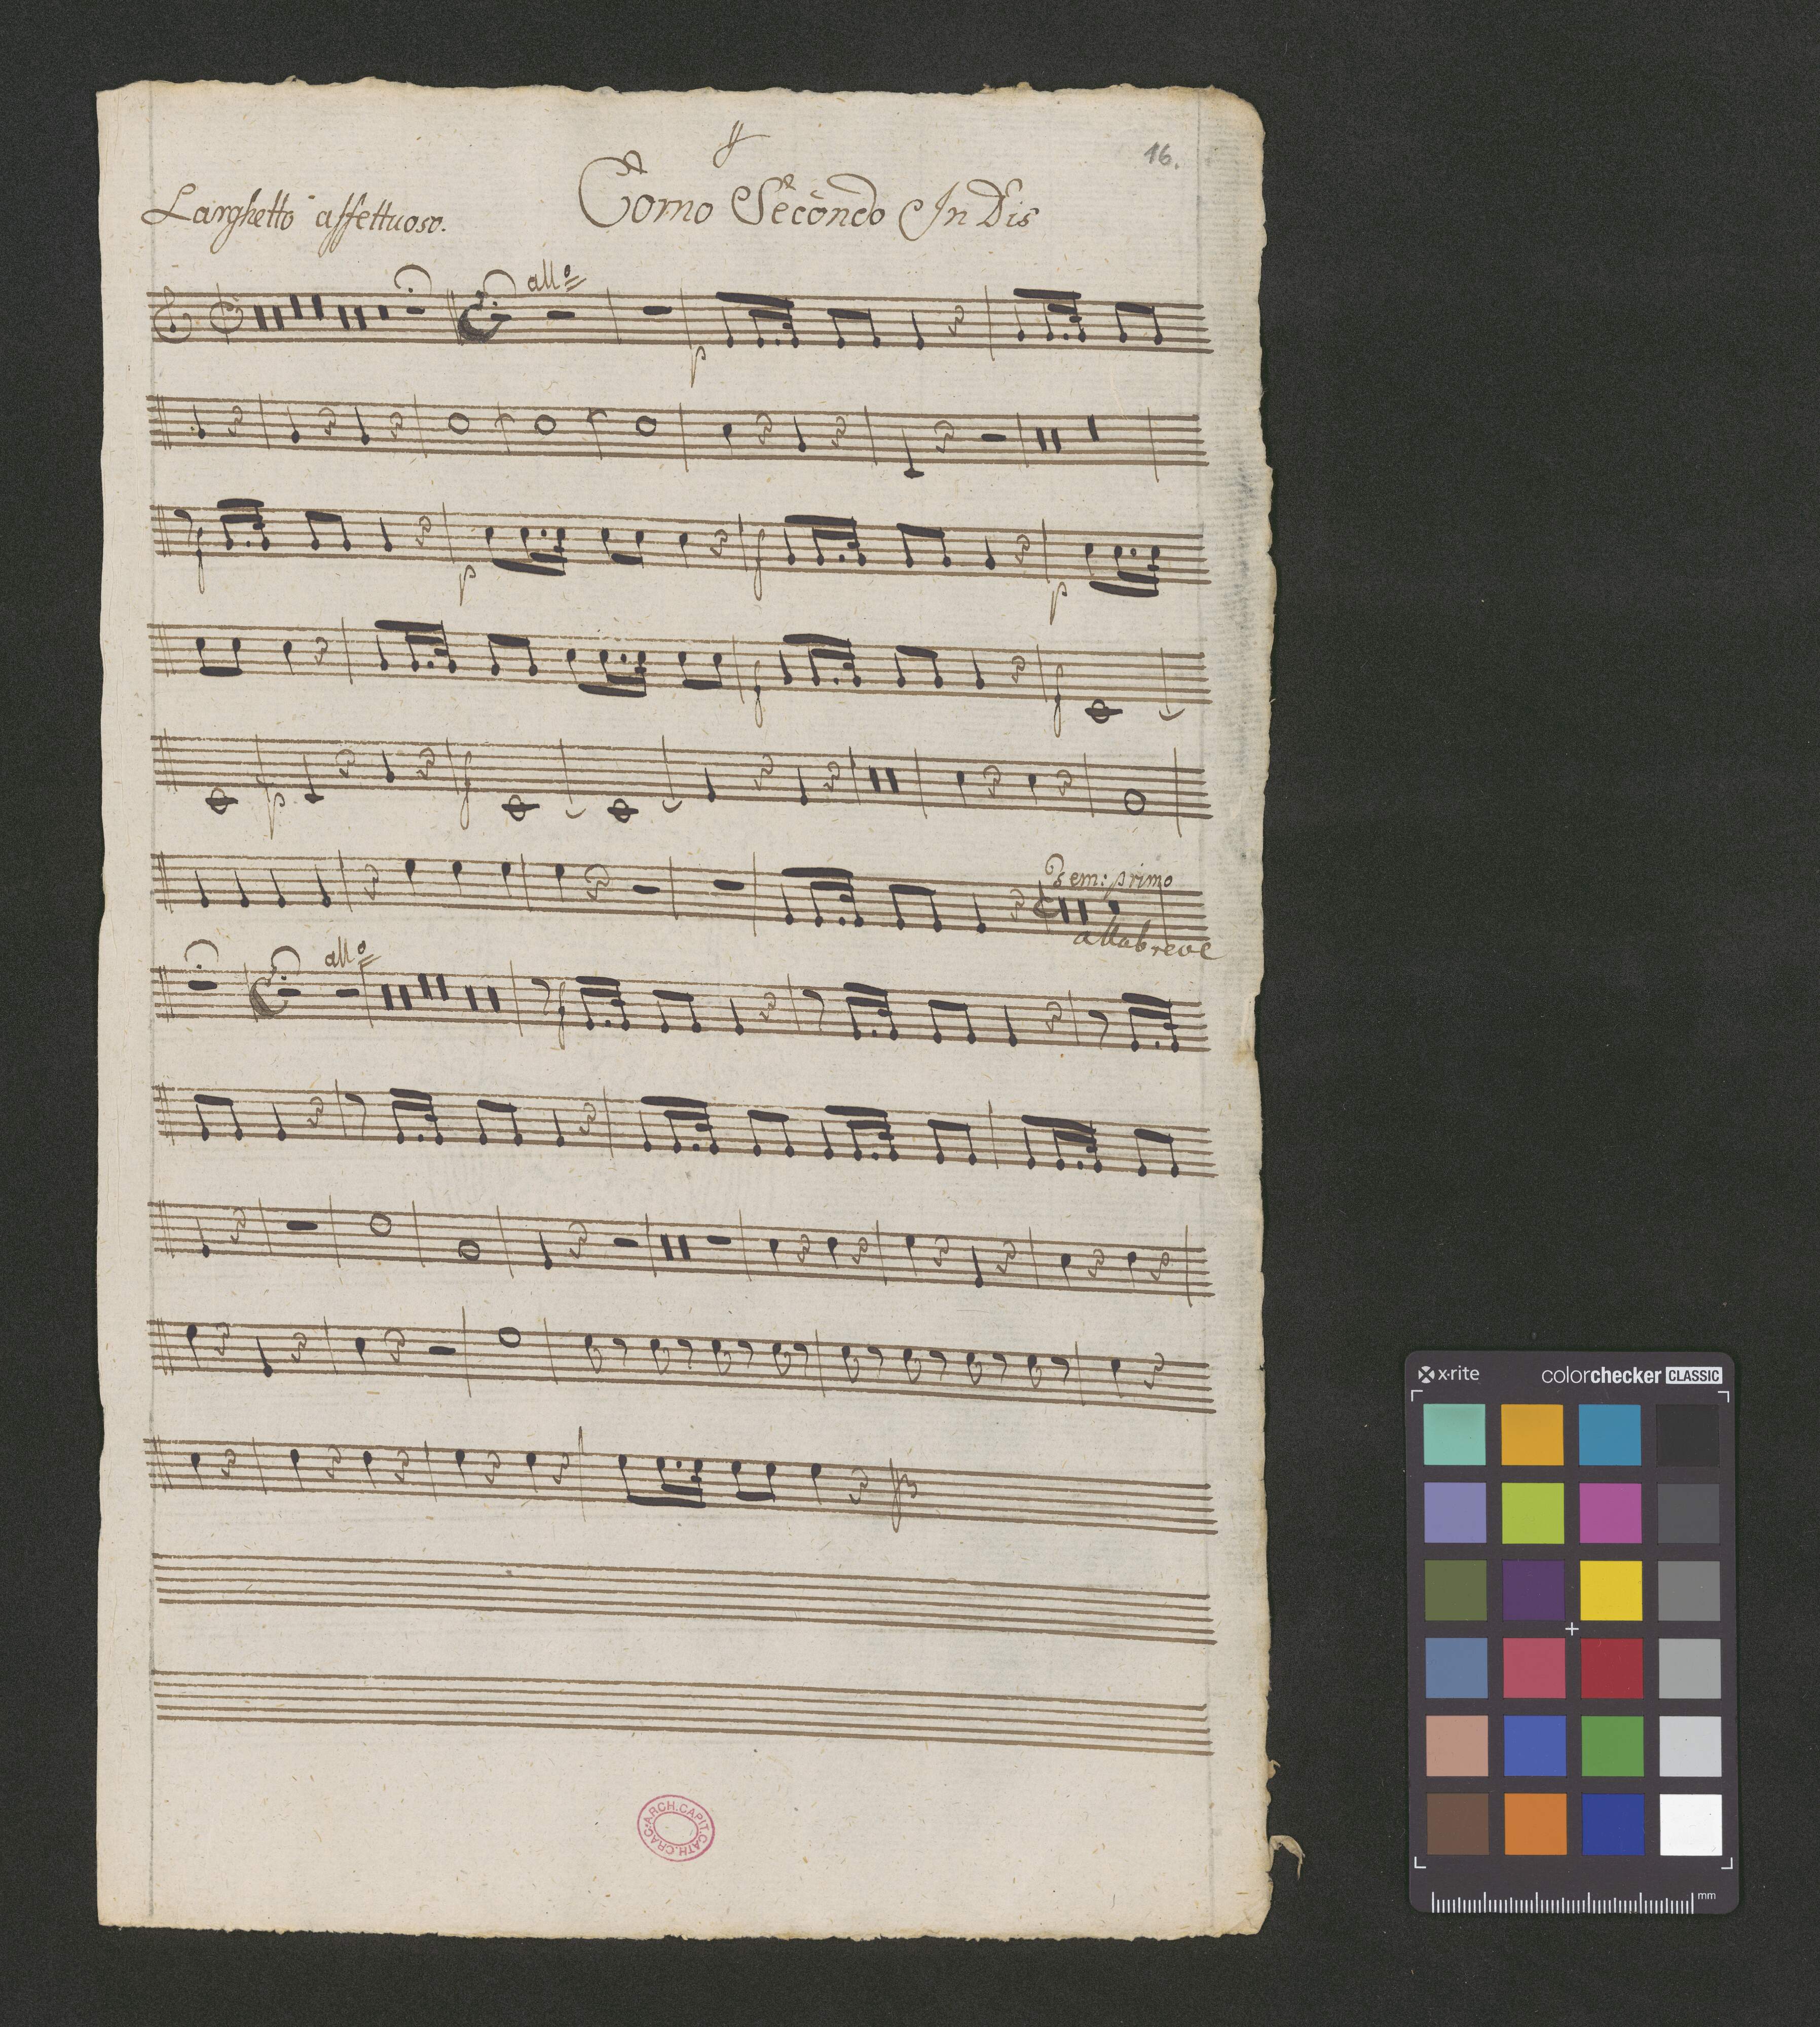 16.
Larghetto affettuoso.
Corno Secondo In Dis
all:o
p
f p f p
f f
p f
Tem: primo
allabreve
all:o
f
ARCH.CAPIT.CATH.CRAC.
x·rite colorchecker CLASSIC
mm